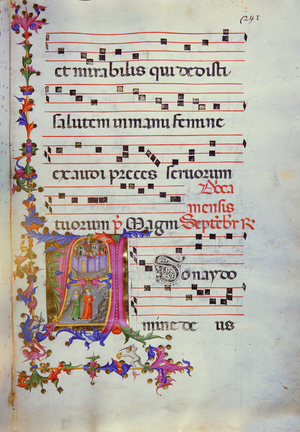 241
et mirabilis qui dedisti
salutem in manu femine
exaudi preces servorum
tuorum p̄ Magni
Doca
mensis
Septēbr R̃
Adonay do
mine de us